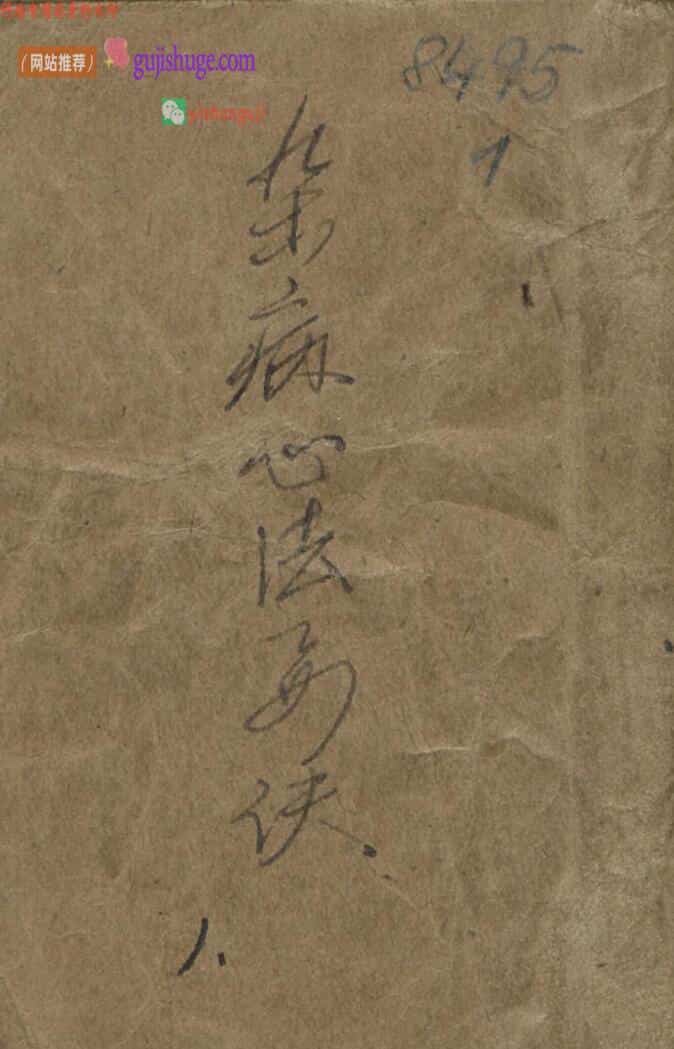 （网站推荐）
gujishuge.com
8495
1
杂病心法要伕
1.